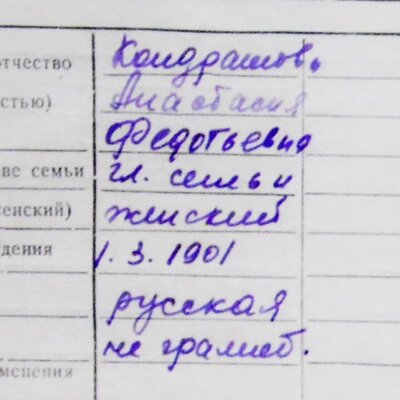 отчество Кондрашов.
стью) Анастасия
Федотьевна
ве семьи гл. семьи
енский) женский
дения 1. 3. 1901
русская
не грамот.
менения